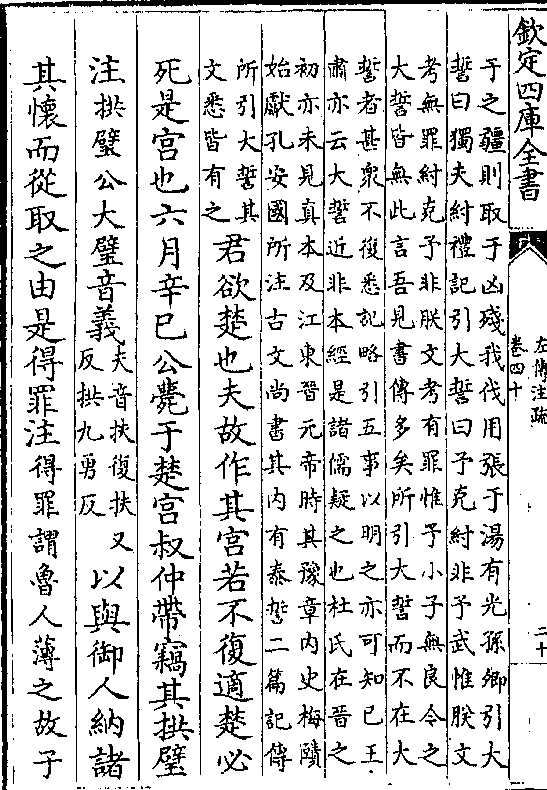 欽定四庫全書
左傳注疏
卷四十
二十
于之疆則取于凶殘我伐用張于湯有光孫卿引大
誓曰獨夫紂禮記引大誓曰予克紂非予武惟朕文
考無罪紂克予非朕文考有罪惟予小子無良今之
大誓皆無此言吾見書傳多矣所引大誓而不在大
誓者甚衆不復悉記略引五事以明之亦可知已王
肅亦云大誓近非本經是諸儒疑之也杜氏在晉之
初亦未見真本及江東晉元帝時其豫章内史梅賾
始獻孔安國所注古文尚書其内有泰誓二篇記傳
所引大誓其
文悉皆有之
君欲楚也夫故作其宫若不復適楚必
死是宫也六月辛巳公薨于楚宫叔仲帶竊其拱璧
注拱璧公大璧音義
夫音扶復扶又
反拱九勇反
以與御人納諸
其懷而從取之由是得罪注得罪謂魯人薄之故子